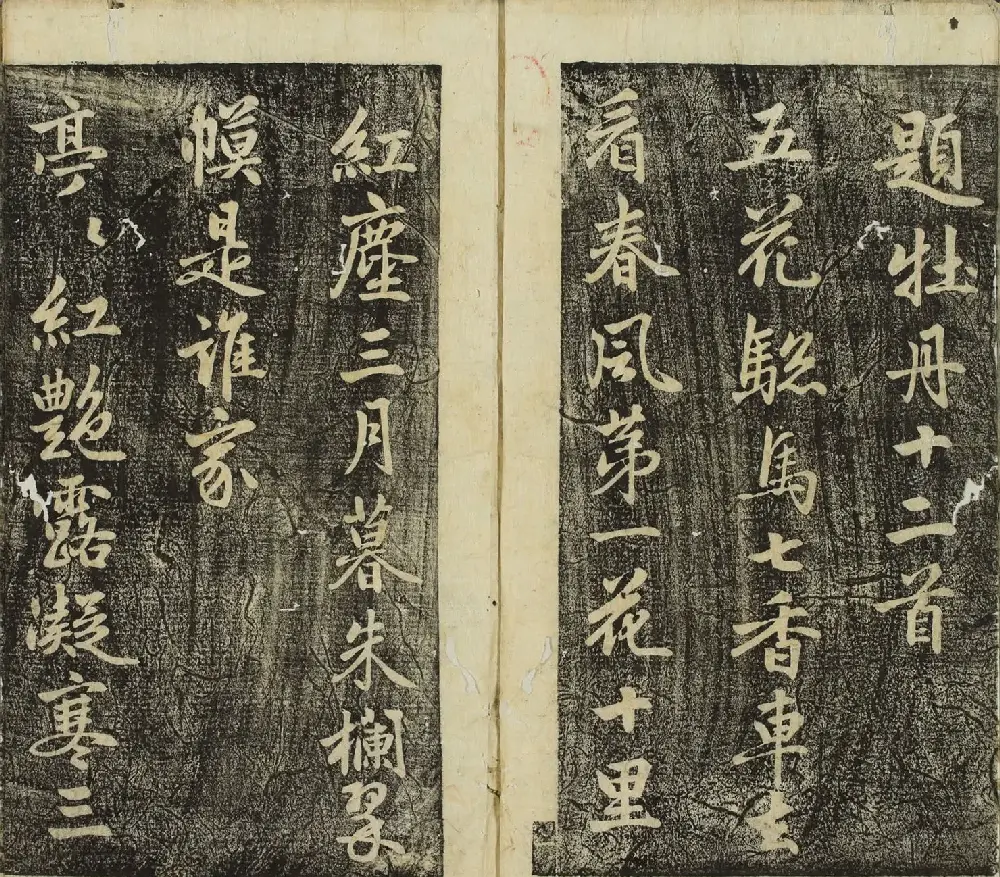 題牡丹十二首
五花驄馬七香車去
看春風苐一花十里
紅塵三月暮朱欄翠
幙是誰家
亭〻紅艶露凝寒三